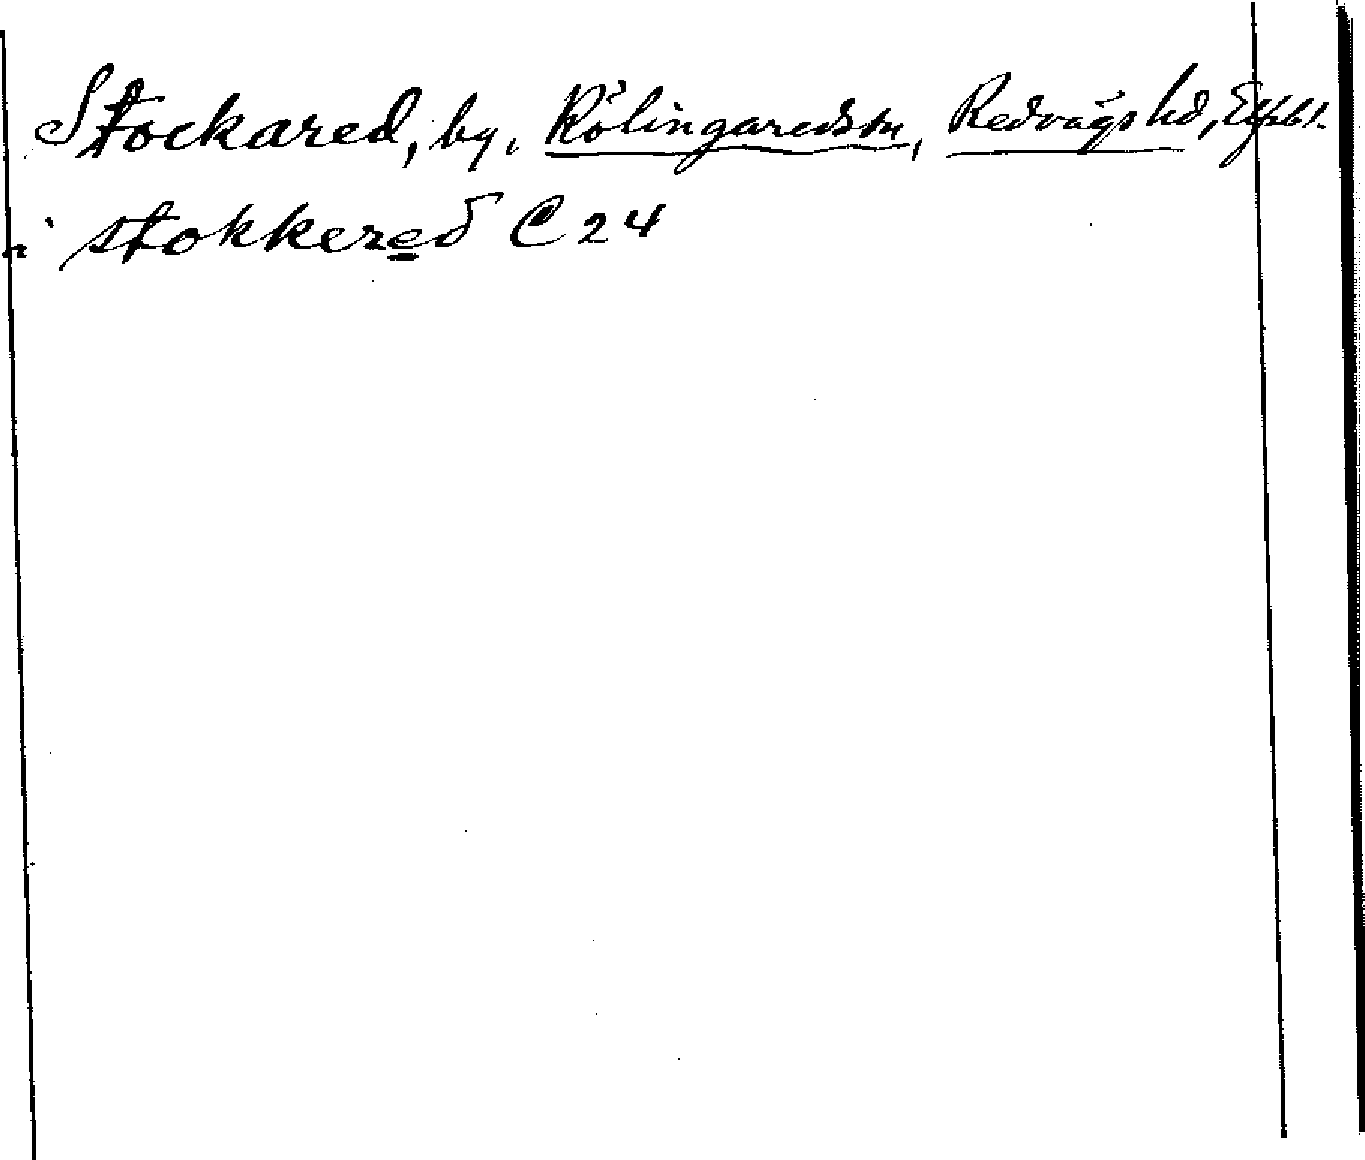 Stockared, by, Kölingaredssn, Redvägs hd, Elfsbl.
i stokkered C 24